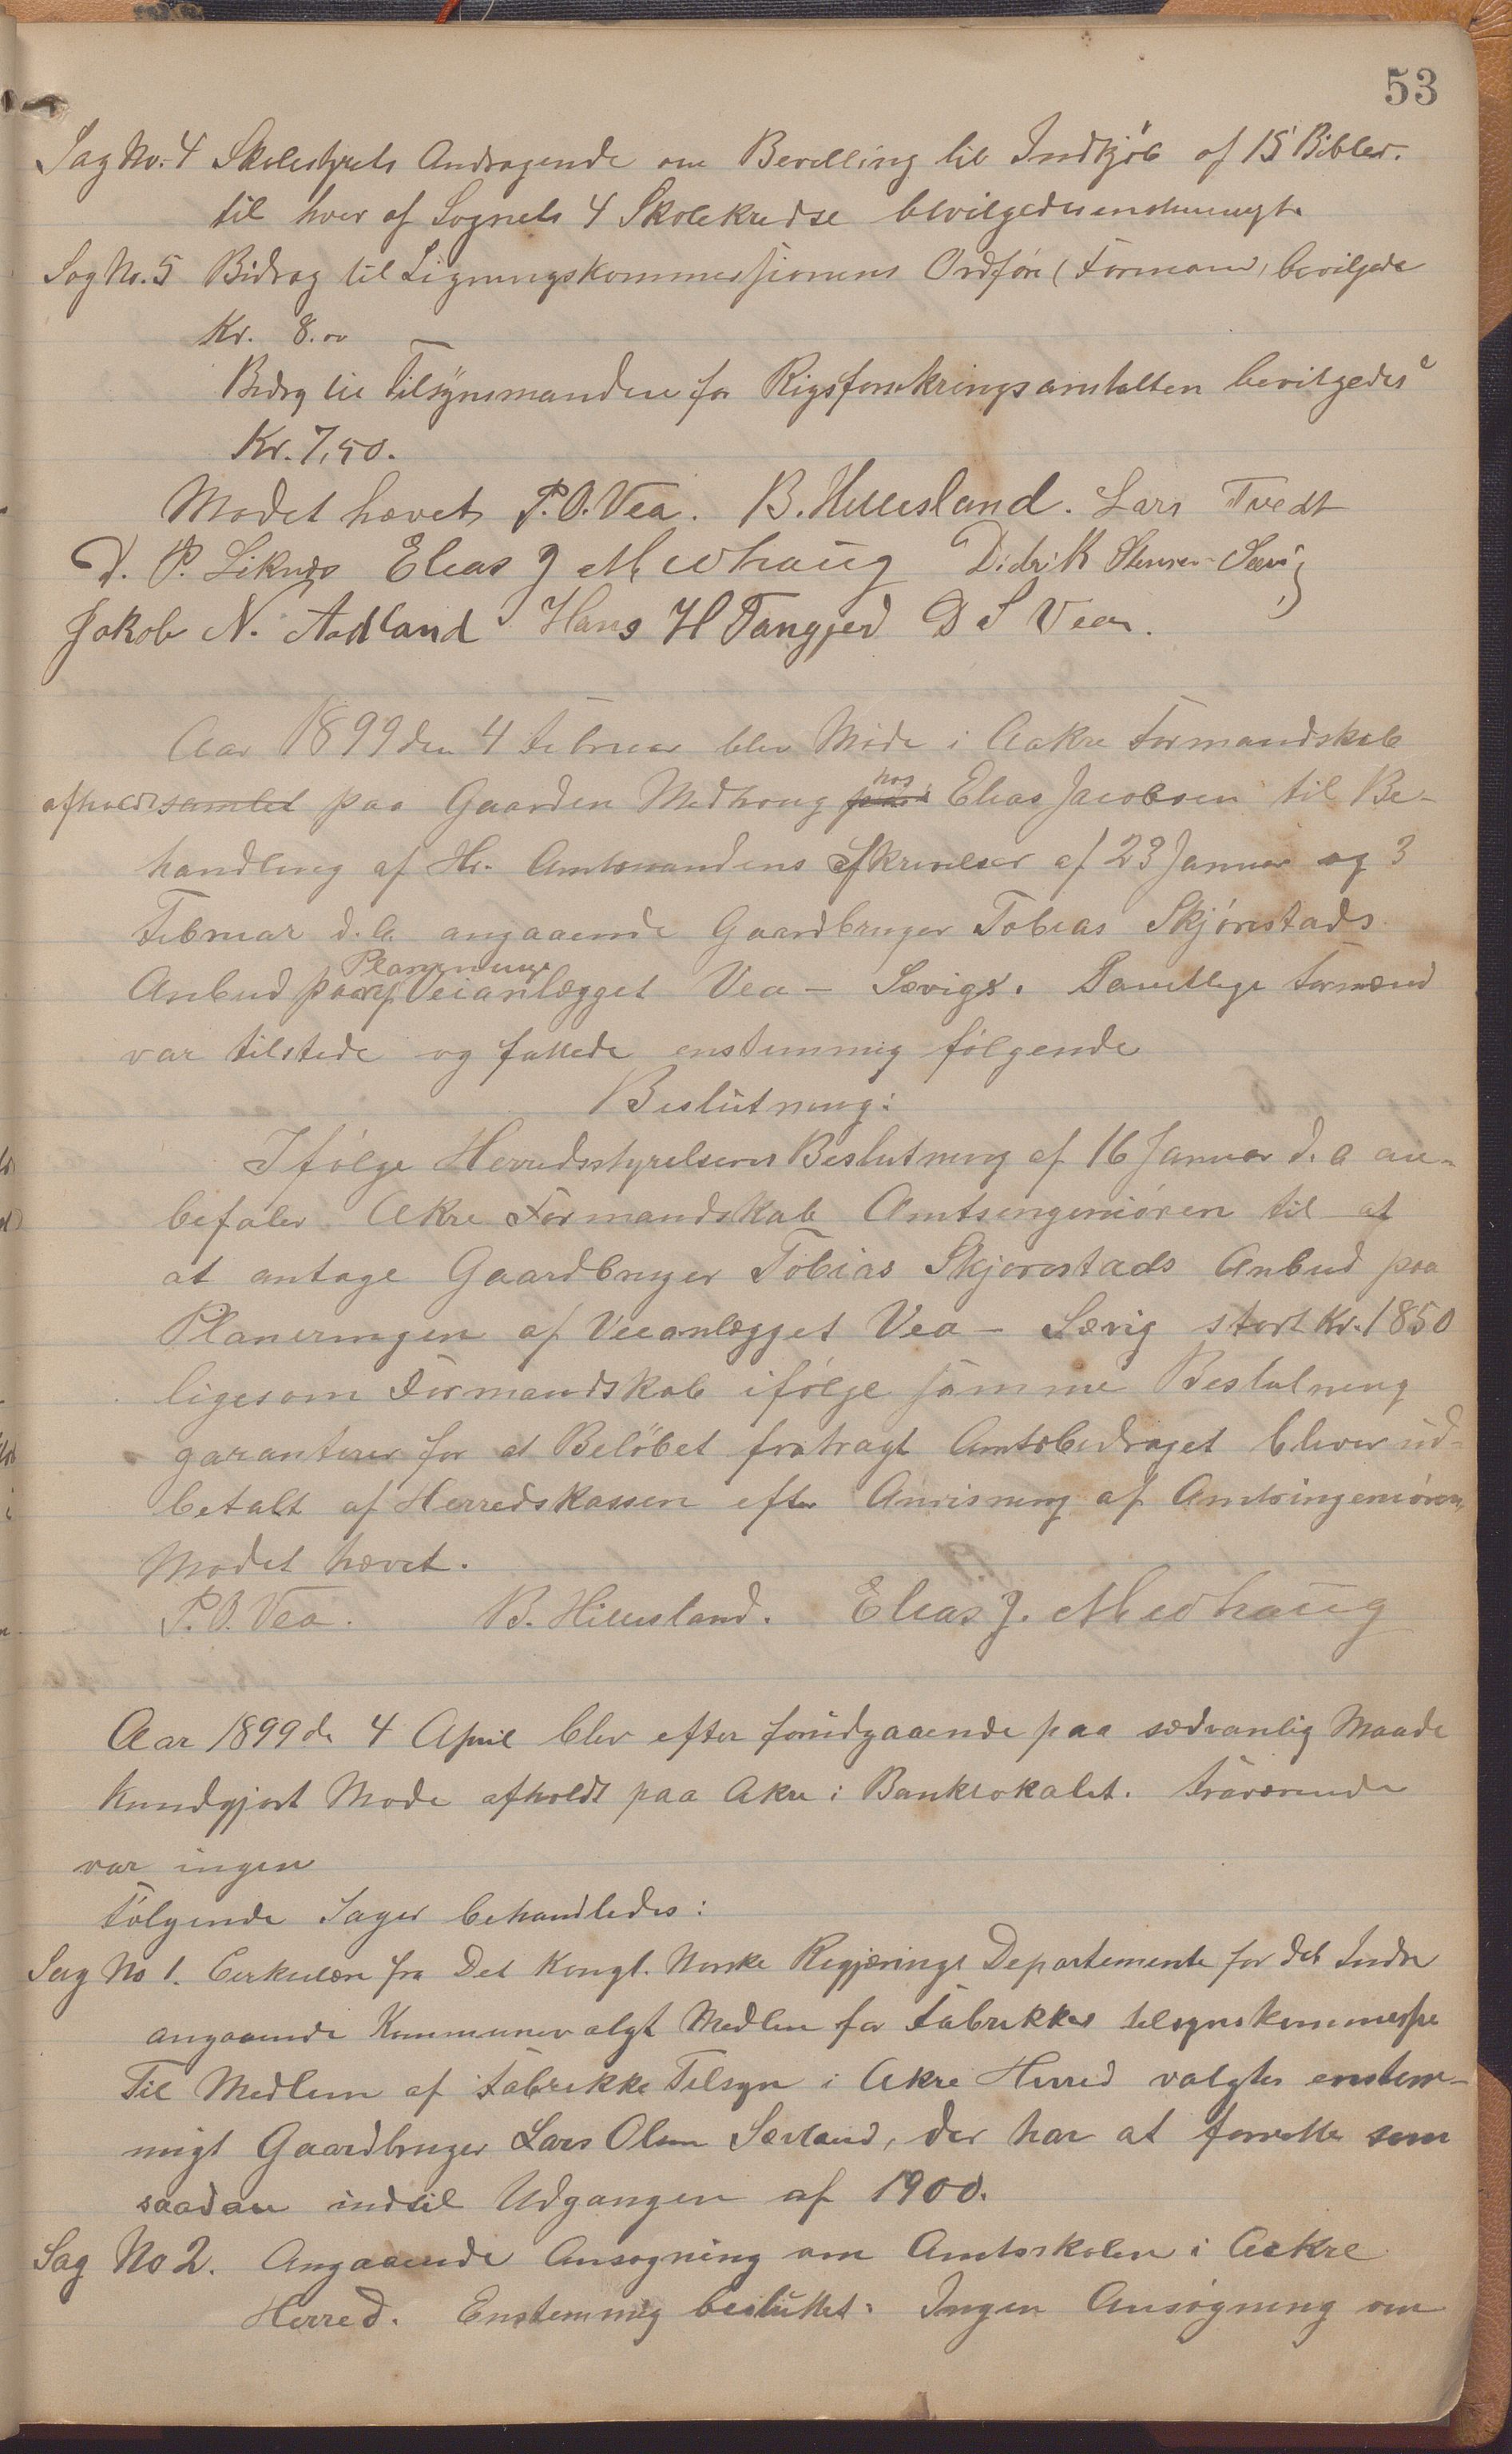 53
Sag No. 4 Skolestyrets Andragende om Bevilling til Indkjöb af 15 Bibler.
til hver af Sognets 4 Skolekredse bevilgedes enstemmigt.
Sag No. 5 Bidrag til Ligningskommissionens Ordförer (Formand) bevilgede
Kr. 8.00
Bidrg til Tilsynsmanden for Rigsforsikringsanstalten bevilgedes
Kr. 7,50.
Mødet hævet P. O. Vea. B. Hillesland. Lars Tvedt
D. P. Liknæs Elias J Medhaug Didrik Stensen Sævig
Jakob N. Aadland Hans H Tangjerd D S Vea.
Aar 1899 den 4 Februar blev Møde i Aakre Formandskab
afholdt samlet paa Gaarden Medhoug hos Elias Jacobsen til Be-
handling af Hr. Amtmandens Skrivelser af 23 Januar og 3
Februar d. A. angaaende Gaardbruger Tobias Skjörestads
Anbud paa Planeringen af Veianlægget Vea - Sævigs. Samtlige Formænd
var tilstede og fattede enstemmig følgende
Beslutning:
Ifölge Herredsstyrelsens Beslutning af 16 Januar d. a an-
befaler Akre Formandskab Amtsingeniören til at
at antage Gaardbruger Tobias Skjorestads Anbud paa
Planeringen af Veianlægget Vea - Sævig stort Kr. 1850
ligesom Formandskab ifølge samme Beslutning
garanterer for at Belöbet fratragt Amtsbidraget bliver ud-
betalt af Herredskassen efter Anvisning af Amtsingeniören,
Mødet hævet.
P. O. Vea. B. Hillesland. Elias J. Medhaug
Aar 1899 dn 4 April blev efter forudgaaende paa sædvanlig Maade
Kundgjort Møde afholdt paa Akre i Banklokalet. Fraværende
var ingen
Følgende Sager behandledes:
Sag No 1. Cirkulære fra Det Kongl. Norske Regjærings Departemente for det Indre
angaaende Kommunevalgt Medlem for Fabrikkes tilsynskommissie
Til Medlem af Fabrikke Tilsyn i Akre Herred valgtes enstem-
migt Gaardbruger Lars Olsen Sævland, der har at forrette som
saadan indtil Udgangen af 1900.
Sag No 2. Angaaende Ansøgning om Amtsskolen i Aakre
Herred. Enstemmig besluttet: Ingen Ansøgning om